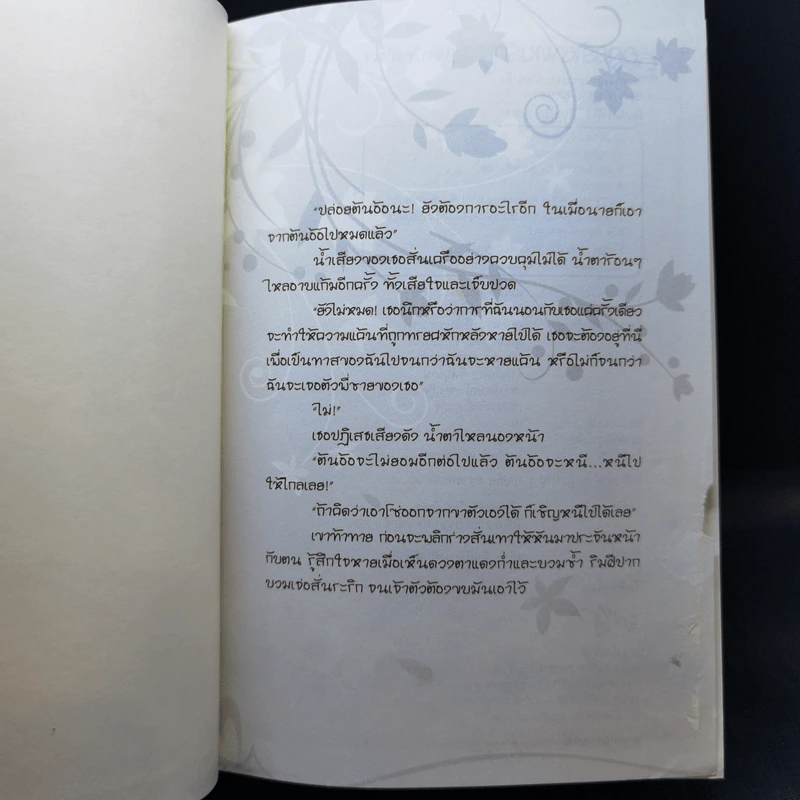 "ปล่อยต้นอ้อนะ! ยังต้องการอะไรอีก ในเมื่อนายก็เอา
จากต้นอ้อไปหมดแล้ว"
น้ำเสียงของเธอสั่นเครืออย่างควบคุมไม่ได้ น้ำตาร้อนๆ
ไหลอาบแก้มอีกครั้ง ทั้งเสียใจและเจ็บปวด
"ยังไม่หมด! เธอนึกหรือว่าการที่ฉันนอนกับเธอแค่ครั้งเดียว
จะทำให้ความแค้นที่ถูกทรยศหักหลังหายไปได้ เธอจะต้องอยู่ที่นี่
เพื่อเป็นทาสของฉันไปจนกว่าฉันจะหายแค้น หรือไม่ก็จนกว่า
ฉันจะเจอตัวพี่ชายของเธอ"
"ไม่!"
เธอปฏิเสธเสียงดัง น้ำตาไหลนองหน้า
"ต้นอ้อจะไม่ยอมอีกต่อไปแล้ว ต้นอ้อจะหนี...หนีไป
ให้ไกลเลย!"
"ถ้าคิดว่าเอาโซ่ออกจากขาตัวเองได้ ก็เชิญหนีไปได้เลย"
เขาท้าทาย ก่อนจะพลิกร่างสั่นเทาให้หันมาประจันหน้า
กับตน รู้สึกใจหายเมื่อเห็นดวงตาแดงก่ำและบวมช้ำ ริมฝีปาก
บวมเจ่อสั่นระริก จนเจ้าตัวต้องขบมันเอาไว้